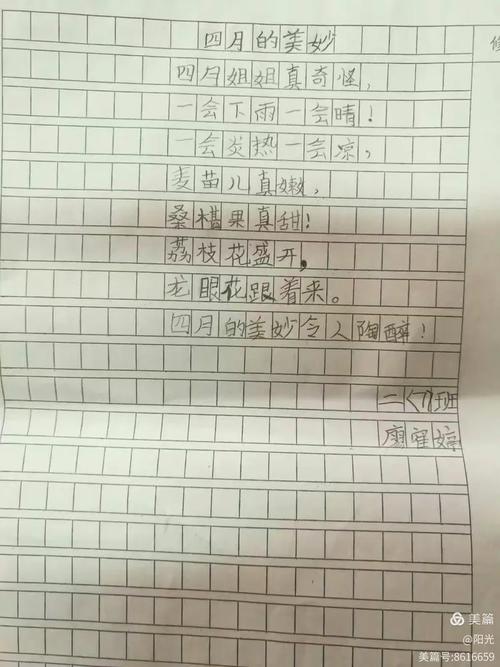 四月的美妙
四月姐姐真奇怪,
一会下雨一会晴!
一会炎热一会凉,
麦苗儿真嫩,
桑椹果真甜!
荔枝花盛开,
龙眼花跟着来。
四月的美妙令人陶醉!
二〈7〉班
廖寉婷
美篇
@阳光
美篇号:8616659